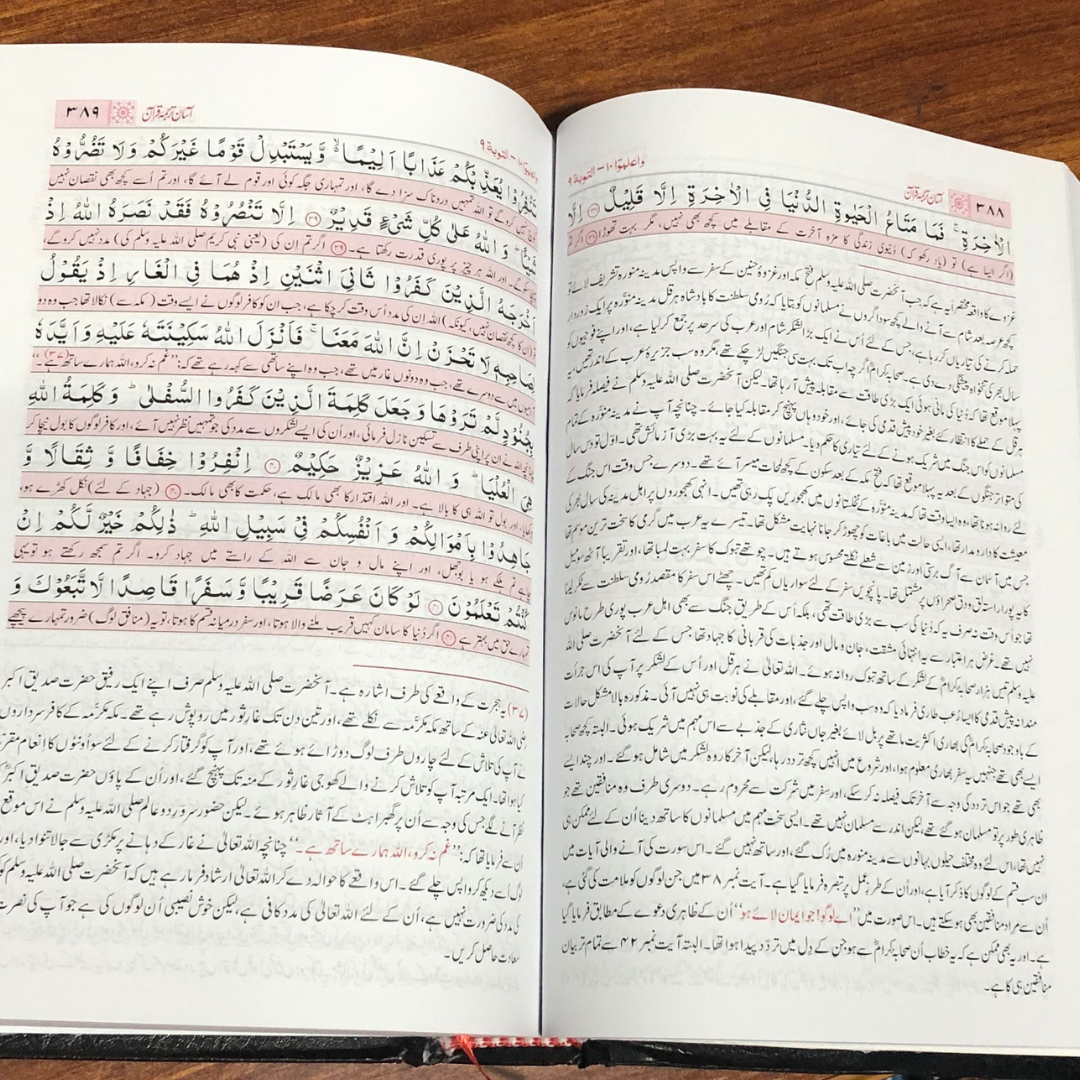 واعلموا ١٠ – التوبة ٩
آسان ترجمۂ قرآن
٣٨٨
الْاٰخِرَةِ ۚ فَمَا مَتَاعُ الْحَيٰوةِ الدُّنْيَا فِى الْاٰخِرَةِ اِلَّا قَلِيْلٌ ﴿٣٨﴾ اِلَّا
(اگر ایسا ہے) تو (یاد رکھو کہ) دُنیوی زندگی کا مزہ آخرت کے مقابلے میں کچھ بھی نہیں، مگر بہت تھوڑا ﴿٣٨﴾ اگر تم
غزوے کا واقعہ مختصراً یہ ہے کہ جب آنحضرت صلی اللہ علیہ وسلم فتحِ مکہ اور غزوۂ حنین کے سفر سے واپس مدینہ منورہ تشریف لائے تو
کچھ عرصہ بعد شام سے آنے والے کچھ سوداگروں نے مسلمانوں کو بتایا کہ رُومی سلطنت کا بادشاہ ہرقل مدینہ منوَّرہ پر ایک زوردار
حملہ کرنے کی تیاریاں کر رہا ہے، جس کے لئے اُس نے ایک بڑا لشکر شام اور عرب کی سرحد پر جمع کر لیا ہے، اور اپنے فوجیوں کو
سال بھر کی تنخواہ پیشگی دے دی ہے۔ صحابہ کرامؓ اگرچہ اب تک بہت سی جنگیں لڑ چکے تھے، مگر وہ سب جزیرۂ عرب کے اندر تھیں، یہ
پہلا موقع تھا کہ دُنیا کی مانی ہوئی ایک بڑی طاقت سے مقابلہ پیش آ رہا تھا۔ لیکن آنحضرت صلی اللہ علیہ وسلم نے فیصلہ فرمایا کہ
ہرقل کے حملے کا انتظار کئے بغیر خود پیش قدمی کی جائے، اور خود وہاں پہنچ کر مقابلہ کیا جائے۔ چنانچہ آپ نے مدینہ منوَّرہ کے تمام
مسلمانوں کو اس جنگ میں شریک ہونے کے لئے تیاری کا حکم دیا۔ مسلمانوں کے لئے یہ بہت بڑی آزمائش تھی۔ اوّل تو دس سال
کی متواتر جنگوں کے بعد یہ پہلا موقع تھا کہ فتحِ مکہ کے بعد سکون کے کچھ لمحات میسر آئے تھے۔ دوسرے جس وقت اس جنگ کے
لئے روانہ ہونا تھا، وہ ایسا وقت تھا کہ مدینہ منوَّرہ کے نخلستانوں میں کھجوریں پک رہی تھیں۔ انہی کھجوروں پر اہلِ مدینہ کی سال بھر کی
معیشت کا دارومدار تھا، ایسی حالت میں باغات کو چھوڑ کر جانا نہایت مشکل تھا۔ تیسرے یہ عرب میں گرمی کا سخت ترین موسم تھا
جس میں آسمان سے آگ برستی اور زمین سے شعلے نکلتے محسوس ہوتے ہیں۔ چوتھے تبوک کا سفر بہت لمبا تھا، اور تقریباً آٹھ سو میل
کا یہ پورا راستہ لق ودق صحراؤں پر مشتمل تھا۔ پانچویں سفر کے لئے سواریاں کم تھیں۔ چھٹے اس سفر کا مقصد رُومی سلطنت سے ٹکر لینا
تھا جو اُس وقت نہ صرف یہ کہ دُنیا کی سب سے بڑی طاقت تھی، بلکہ اُس کے طریقِ جنگ سے بھی اہلِ عرب پوری طرح مانوس
نہیں تھے۔ غرض ہر اعتبار سے یہ انتہائی مشقت، جان ومال اور جذبات کی قربانی کا جہاد تھا جس کے لئے آنحضرت صلی اللہ
علیہ وسلم تیس ہزار صحابہ کرامؓ کے لشکر کے ساتھ تبوک روانہ ہوئے۔ اللہ تعالیٰ نے ہرقل اور اُس کے لشکر پر آپ کی اس جرأت
مندانہ پیش قدمی کا ایسا رُعب طاری فرما دیا کہ وہ سب واپس چلے گئے، اور مقابلے کی نوبت ہی نہیں آئی۔ مذکورہ بالا مشکل حالات
کے باوجود صحابہ کرامؓ کی بھاری اکثریت ماتھے پر بل لائے بغیر جاں نثاری کے جذبے سے اس مہم میں شریک ہوئی۔ البتہ کچھ صحابہ
ایسے بھی تھے جنہیں یہ سفر بھاری معلوم ہوا، اور شروع میں انہیں کچھ تردد رہا، لیکن آخر کار وہ لشکر میں شامل ہو گئے۔ اور چند ایسے
بھی تھے جو اس تردد کی وجہ سے آخر تک فیصلہ نہ کر سکے، اور سفر میں شرکت سے محروم رہے۔ دوسری طرف وہ منافقین تھے جو
ظاہری طور پر تو مسلمان ہو گئے تھے، لیکن اندر سے مسلمان نہیں تھے۔ ایسی سخت مہم میں مسلمانوں کا ساتھ دینا اُن کے لئے ممکن ہی
نہیں تھا، اس لئے وہ مختلف حیلوں بہانوں سے مدینہ منورہ میں رُک گئے، اور ساتھ نہیں گئے۔ اس سورت کی آنے والی آیات میں
ان سب قسم کے لوگوں کا ذکر آیا ہے، اور اُن کے طرزِ عمل پر تبصرہ فرمایا گیا ہے۔ آیت نمبر ٣٨ میں جن لوگوں کو ملامت کی گئی ہے،
اُن سے مراد منافقین بھی ہو سکتے ہیں۔ اس صورت میں ”اے لوگو! جو ایمان لائے ہو“ اُن کے ظاہری دعوے کے مطابق فرمایا گیا
ہے۔ اور یہ بھی ممکن ہے کہ یہ خطاب اُن صحابہ کرامؓ سے ہو جن کے دِل میں تردّد پیدا ہوا تھا۔ البتہ آیت نمبر ٤٢ سے تمام تر بیان
منافقین ہی کا ہے۔
واعلموا ١٠ – التوبة ٩
آسان ترجمۂ قرآن
٣٨٩
تَنْفِرُوْا يُعَذِّبْكُمْ عَذَابًا اَلِيْمًا ۙ۬ وَّيَسْتَبْدِلْ قَوْمًا غَيْرَكُمْ وَلَا تَضُرُّوْهُ
کوچ نہیں کرو گے تو اللہ تمہیں دردناک سزا دے گا، اور تمہاری جگہ کوئی اور قوم لے آئے گا، اور تم اُسے کچھ بھی نقصان نہیں
شَيْـًٔا ؕ وَ اللّٰهُ عَلٰى كُلِّ شَىْءٍ قَدِيْرٌ ﴿٣٩﴾ اِلَّا تَنْصُرُوْهُ فَقَدْ نَصَرَهُ اللّٰهُ اِذْ
پہنچا سکو گے۔ اور اللہ ہر چیز پر پوری قدرت رکھتا ہے۔ ﴿٣٩﴾ اگر تم ان کی (یعنی نبی کریم صلی اللہ علیہ وسلم کی) مدد نہیں کرو گے،
اَخْرَجَهُ الَّذِيْنَ كَفَرُوْا ثَانِىَ اثْنَيْنِ اِذْ هُمَا فِى الْغَارِ اِذْ يَقُوْلُ
تو (ان کا کچھ نقصان نہیں، کیونکہ) اللہ اِن کی مدد اُس وقت کر چکا ہے، جب ان کو کافر لوگوں نے ایسے وقت (مکہ سے) نکالا تھا جب وہ دو
لِصَاحِبِهٖ لَا تَحْزَنْ اِنَّ اللّٰهَ مَعَنَا ۚ فَاَنْزَلَ اللّٰهُ سَكِيْنَتَهٗ عَلَيْهِ وَاَيَّدَهٗ
آدمیوں میں سے دوسرے تھے، جب وہ دونوں غار میں تھے، جب وہ اپنے ساتھی سے کہہ رہے تھے کہ: ”غم نہ کرو، اللہ ہمارے ساتھ ہے“ (٣٧)
بِجُنُوْدٍ لَّمْ تَرَوْهَا وَجَعَلَ كَلِمَةَ الَّذِيْنَ كَفَرُوا السُّفْلٰى ؕ وَكَلِمَةُ اللّٰهِ
چنانچہ اللہ نے ان پر اپنی طرف سے تسکین نازل فرمائی، اور اُن کی ایسے لشکروں سے مدد کی جو تمہیں نظر نہیں آئے، اور کافر لوگوں کا بول نیچا کر
هِىَ الْعُلْيَا ؕ وَ اللّٰهُ عَزِيْزٌ حَكِيْمٌ ﴿٤٠﴾ اِنْفِرُوْا خِفَافًا وَّ ثِقَالًا وَّ
دکھایا، اور بول تو اللہ ہی کا بالا ہے۔ اور اللہ اقتدار کا بھی مالک ہے، حکمت کا بھی مالک۔ ﴿٤٠﴾ (جہاد کے لئے) نکل کھڑے ہو،
جَاهِدُوْا بِاَمْوَالِكُمْ وَ اَنْفُسِكُمْ فِىْ سَبِيْلِ اللّٰهِ ؕ ذٰلِكُمْ خَيْرٌ لَّكُمْ اِنْ
چاہے تم ہلکے ہو یا بوجھل، اور اپنے مال و جان سے اللہ کے راستے میں جہاد کرو۔ اگر تم سمجھ رکھتے ہو تو یہی
كُنْتُمْ تَعْلَمُوْنَ ﴿٤١﴾ لَوْ كَانَ عَرَضًا قَرِيْبًا وَّ سَفَرًا قَاصِدًا لَّا تَّبَعُوْكَ وَ
تمہارے حق میں بہتر ہے ﴿٤١﴾ اگر دُنیا کا سامان کہیں قریب ملنے والا ہوتا، اور سفر درمیانہ قسم کا ہوتا، تو یہ (منافق لوگ) ضرور تمہارے پیچھے
(٣٧) یہ ہجرت کے واقعے کی طرف اشارہ ہے۔ آنحضرت صلی اللہ علیہ وسلم صرف اپنے ایک رفیق حضرت صدیق اکبر
رضی اللہ تعالیٰ عنہ کے ساتھ مکہ مکرَّمہ سے نکلے تھے، اور تین دن تک غارِ ثور میں روپوش رہے تھے۔ مکہ مکرَّمہ کے کافر سرداروں
نے آپ کی تلاش کے لئے چاروں طرف لوگ دوڑائے ہوئے تھے، اور آپ کو گرفتار کرنے کے لئے سو اُونٹوں کا انعام مقرر
کیا ہوا تھا۔ ایک مرتبہ آپ کو تلاش کرنے والے کھوجی غارِ ثور کے منہ تک پہنچ گئے، اور اُن کے پاؤں حضرت صدیق اکبرؓ کو
نظر آنے لگے جس کی وجہ سے اُن پر گھبراہٹ کے آثار ظاہر ہوئے۔ لیکن حضور سرورِ دو عالم صلی اللہ علیہ وسلم نے اس موقع پر
اُن سے فرمایا تھا کہ: ”غم نہ کرو، اللہ ہمارے ساتھ ہے۔“ چنانچہ اللہ تعالیٰ نے غار کے دہانے پر مکڑی سے جالا تنوا دیا، اور
لوگ اُسے دیکھ کر واپس چلے گئے۔ اس واقعے کا حوالہ دے کر اللہ تعالیٰ ارشاد فرما رہے ہیں کہ آنحضرت صلی اللہ علیہ وسلم کو
کی مدد کی ضرورت نہیں ہے، اُن کے لئے اللہ تعالیٰ کی مدد کافی ہے، لیکن خوش نصیبی اُن لوگوں کی ہے جو آپ کی نصرت کی
سعادت حاصل کریں۔